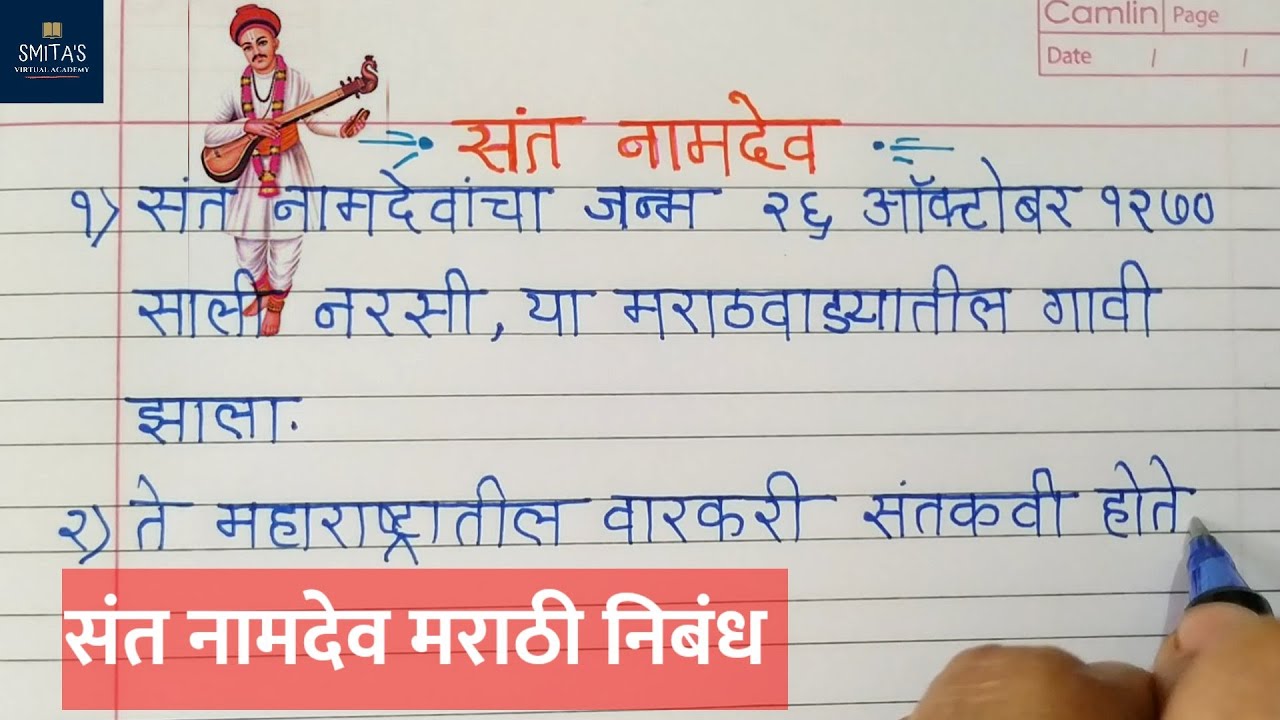 SMITA'S
VIRTUAL ACADEMY
Camlin Page
Date / /
संत नामदेव
१) संत नामदेवांचा जन्म २६ ऑक्टोबर १२७०
साली नरसी, या मराठवाड्यातील गावी
झाला.
२) ते महाराष्ट्रातील वारकरी संतकवी होते
संत नामदेव मराठी निबंध